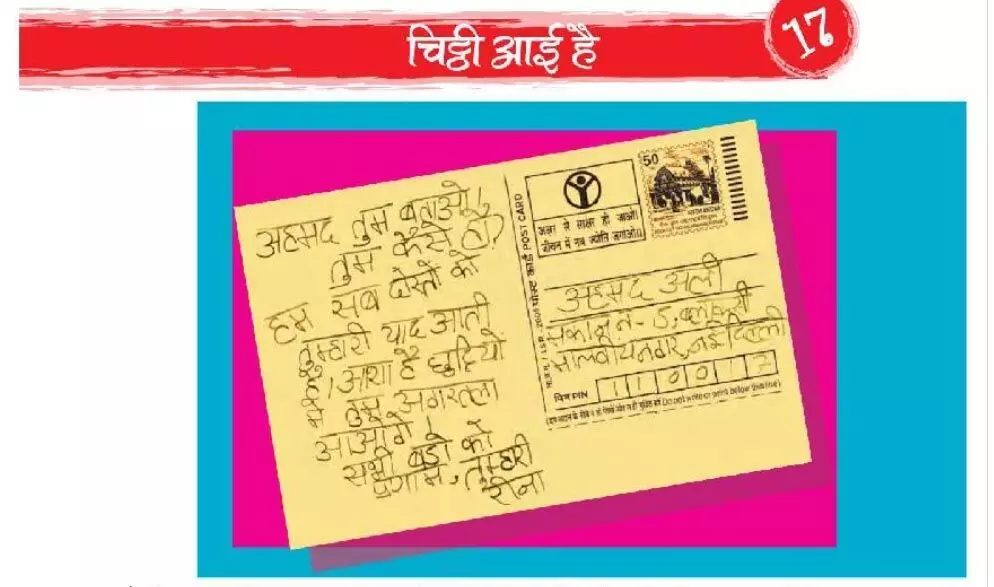 चिट्ठी आई है
17
अहमद तुम बताओ!
तुम कैसे हो?
हम सब दोस्तों को
तुम्हारी याद आती
है। आशा है छुट्टियों
में तुम अगरतला
आओगे!
सभी बड़ो को
प्रणाम, तुम्हारी
रीना
पोस्ट कार्ड POST CARD
50
अक्षर से साक्षर हो जाओ।
जीवन में नव ज्योति जगाओ।।
अहमद अली
मकान नं- 5, ब्लॉक
मालवीयनगर, नई दिल्ली
पिन PIN 110017
(Do not write or print below this line)